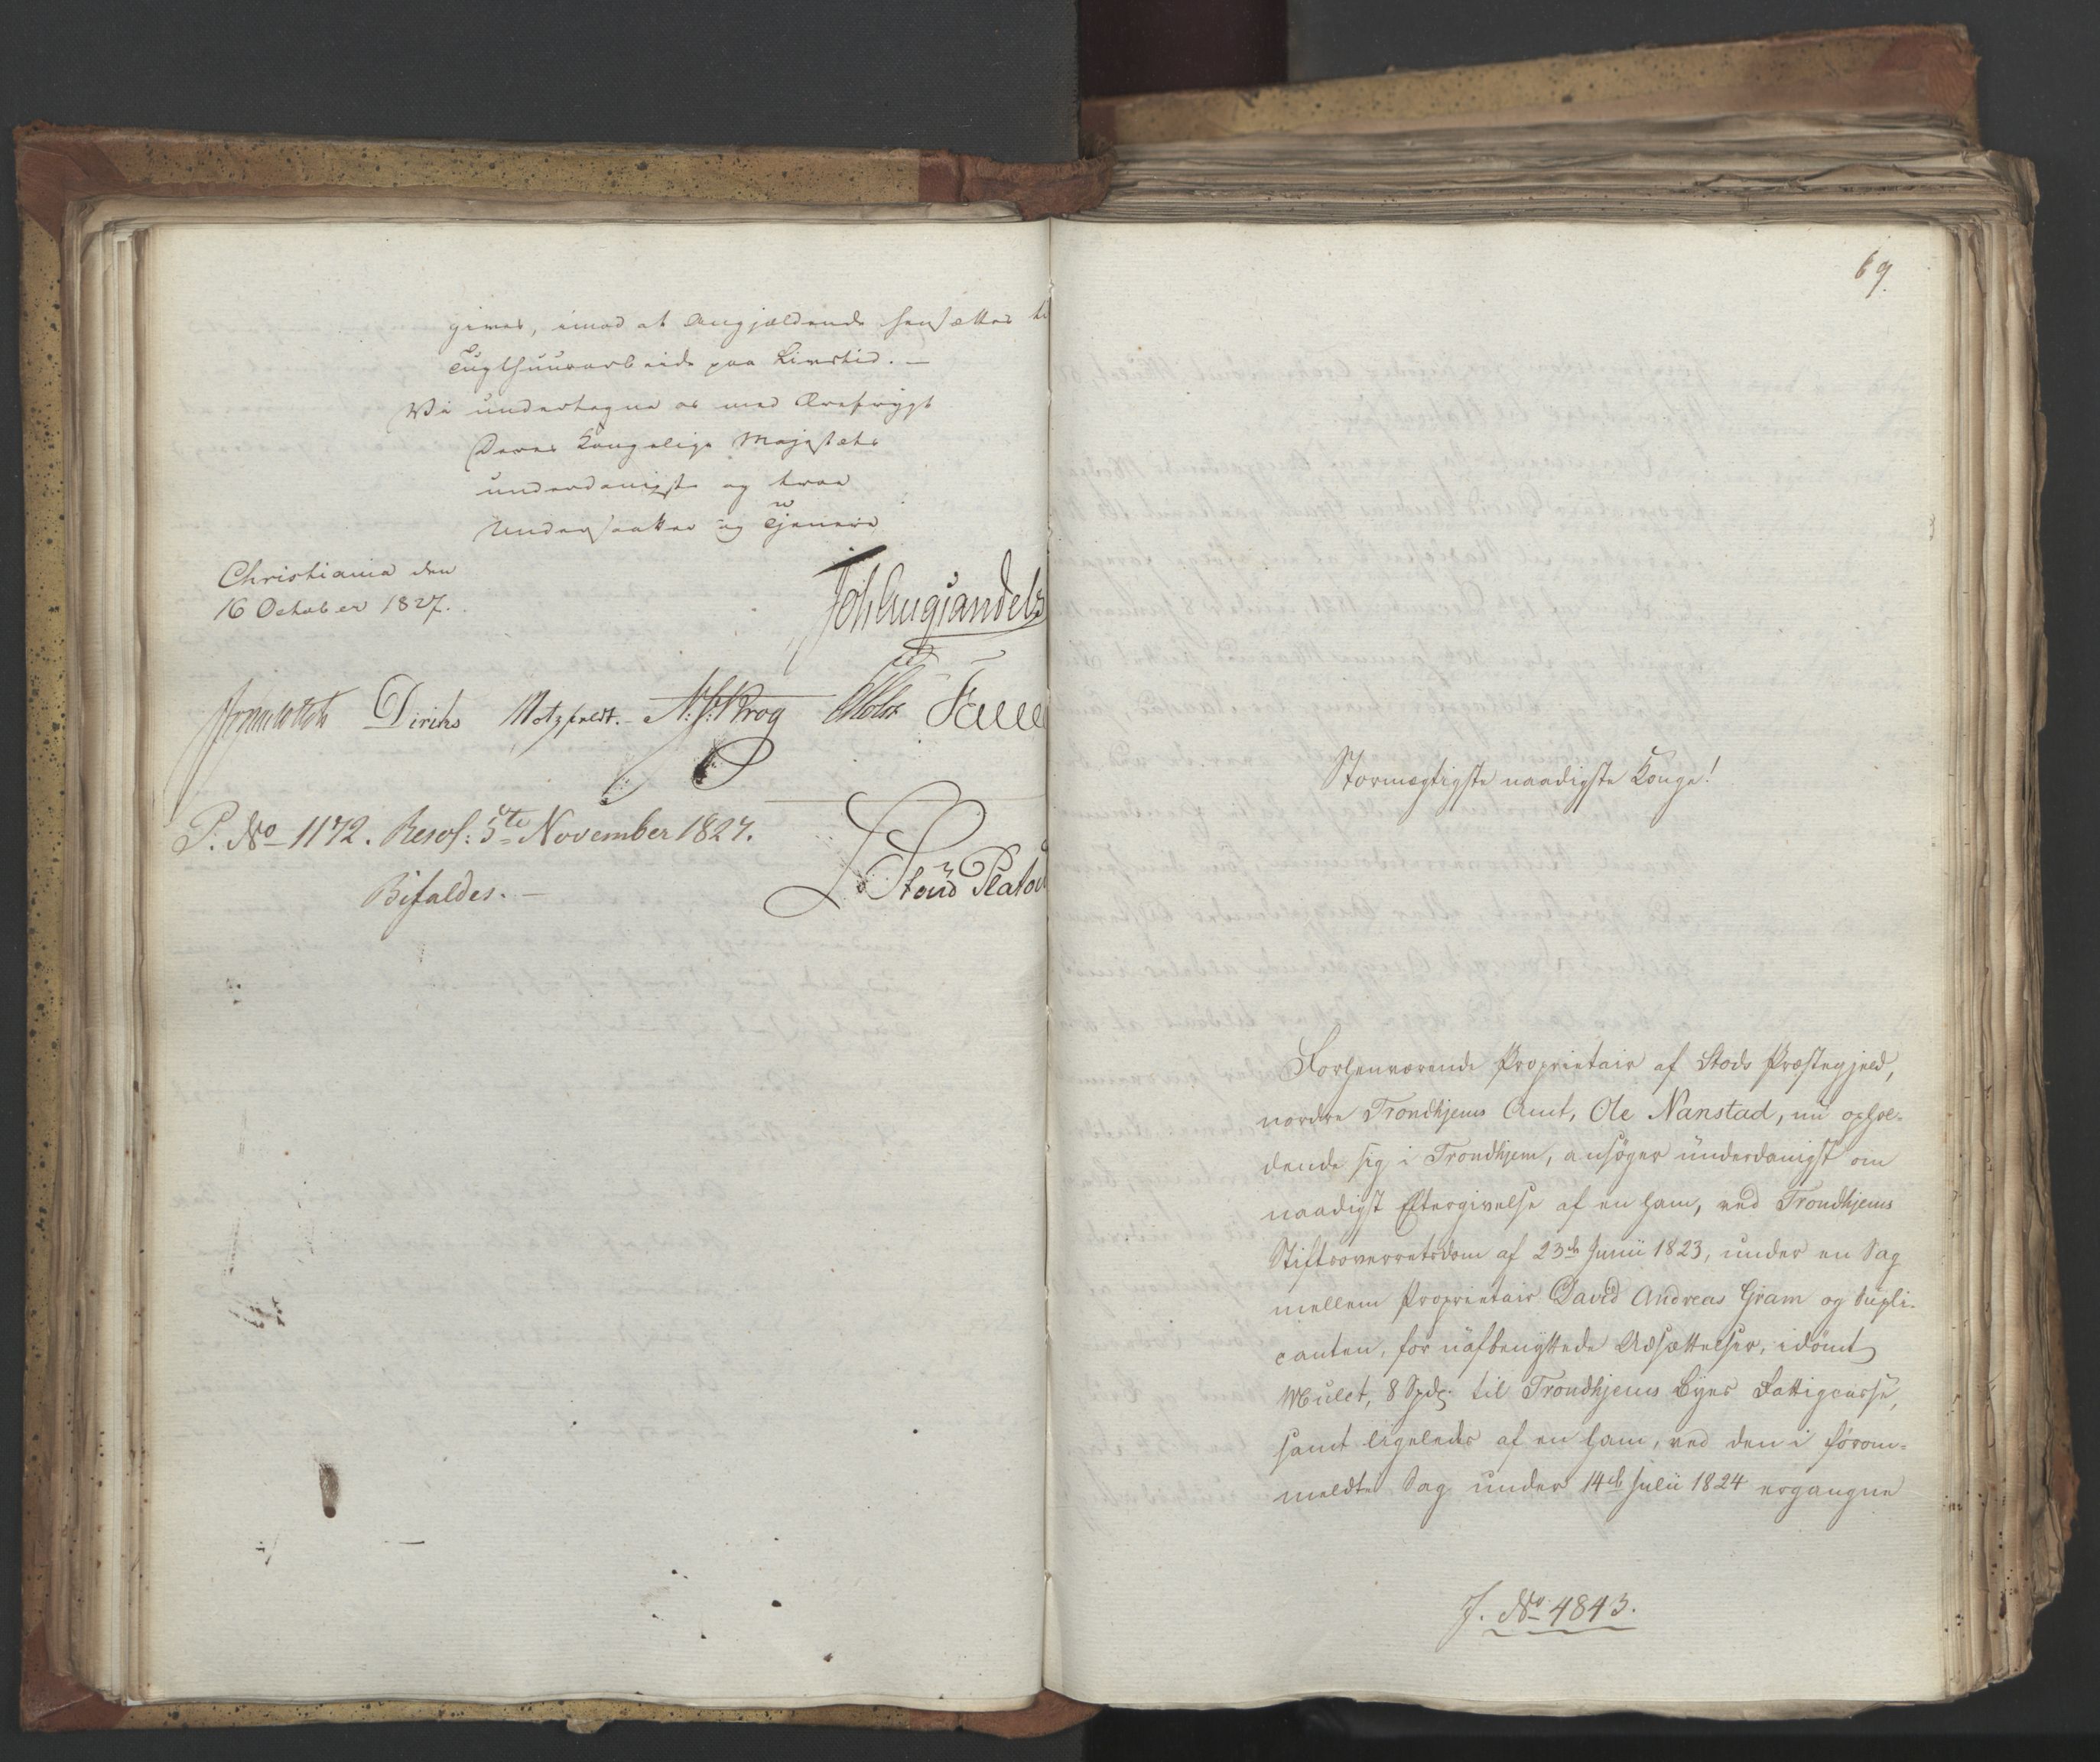 gives, imod at Angjældende hensættes ti
Tugthuusarbeide paa Livstid. —
Vi undertegne os med Ærefrygt
Deres Kongelige Majestæts
underdanigste og troe
Undersaatter og Tjenere
Christiania den
16 October 1827.
Joh Aug Sandels
Diriks Motzfeldt. N. J. Krog
P. No 1172. Resol: 5te November 1827.
Bifaldes. —
69.
Stormægtigste naadigste Konge!
Forhenværende Proprietair af Stods Præstegjeld,
nordre Trondhjems Amt, Ole Nanstad, nu ophol-
dende sig i Trondhjem, ansøger underdanigst om
naadigst Eftergivelse af en ham, ved Trondhjems
Stiftsoverretsdom af 23de Junii 1823, under en Sag
mellem Proprietair David Andreas Gram og Supli-
canten, for uafbenyttede Udsættelser, idømt
Mulct, 8 Spd. til Trondhjems Byes Fattigcasse,
samt ligeledes af en ham, ved den i forom-
meldte Sag under 14de Julii 1824 ergangne
J. No 4843.